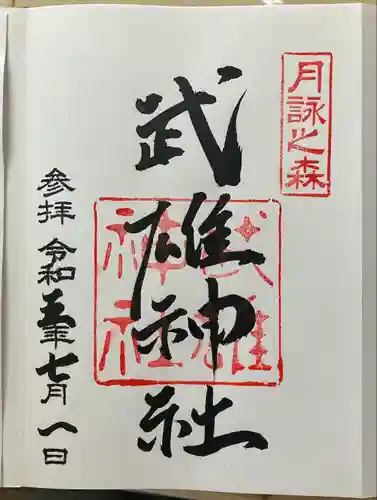 月詠之森
武雄神社
武雄神社
参拝 令和五年七月一日